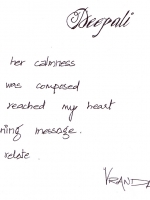 Deepali
her calmness
was composed
reached my heart
ning message.
relate.